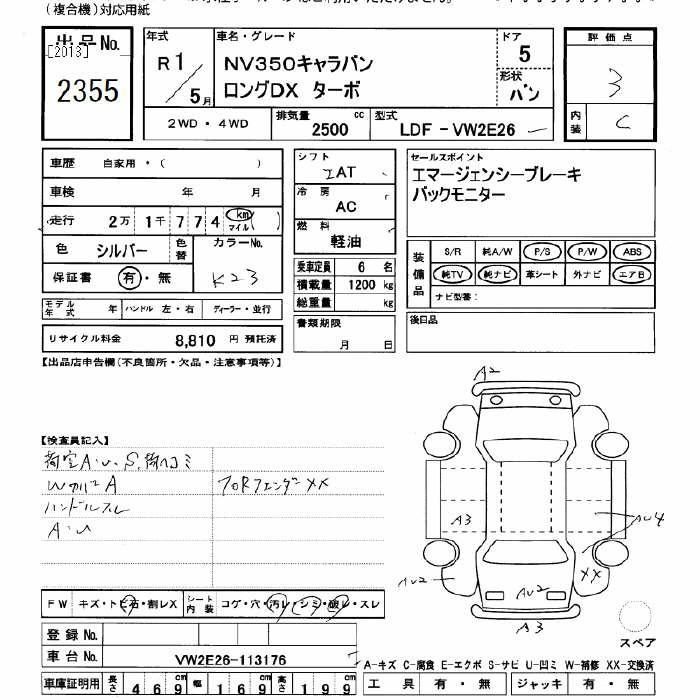 (複合機)対応用紙
出品No.
[2013]
2355
年式
R1
5月
車名・グレード
NV350キャラバン
ロングDX ターボ
ドア
5
形状
バン
評価点
3
内装
C
2WD・4WD
排気量
2500
cc
型式
LDF-VW2E26
車歴 自家用・( )
車検 年 月
走行 2万 1千 7 7 4 km マイル ( )
色 シルバー
色替
カラーNo.
K23
保証書 有・無
モデル年式 年 ハンドル 左・右 ディーラー・並行
リサイクル料金 8,810 円 預託済
シフト
IAT
冷房
AC
燃料
軽油
乗車定員 6 名
積載量 1200 kg
総重量 kg
書類期限
月 日
セールスポイント
エマージェンシーブレーキ
バックモニター
装備品
S/R 純A/W P/S P/W ABS
純TV 純ナビ 革シート 外ナビ エアB
ナビ型番:
後日品
【出品店申告欄(不良箇所・欠品・注意事項等)】
【検査員記入】
荷室A・U、S、荷ヘコミ
WカバーA
フロRフェンダーXX
ハンドルスレ
A・U
A2
A3
AU4
AU2
XX
AU2
A3
スペア
FW キズ・トビ石・割レX
シート内装 コゲ・穴・汚レ・シミ・破レ・スレ
登録No.
車台No. VW2E26-113176
A-キズ C-腐食 E-エクボ S-サビ U-凹ミ W-補修 XX-交換済
車庫証明用 長さ 469 cm 幅 169 cm 高さ 199 cm
工具 有・無 ジャッキ 有・無